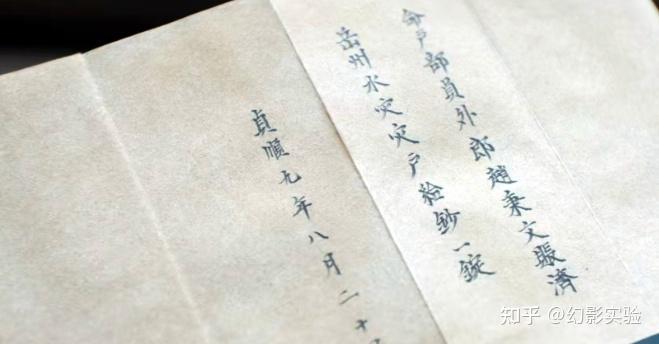 命戶部員外郎趙秉文賑濟
岳州水灾灾戶給鈔一錠
貞順九年八月二十
知乎 @幻影实验